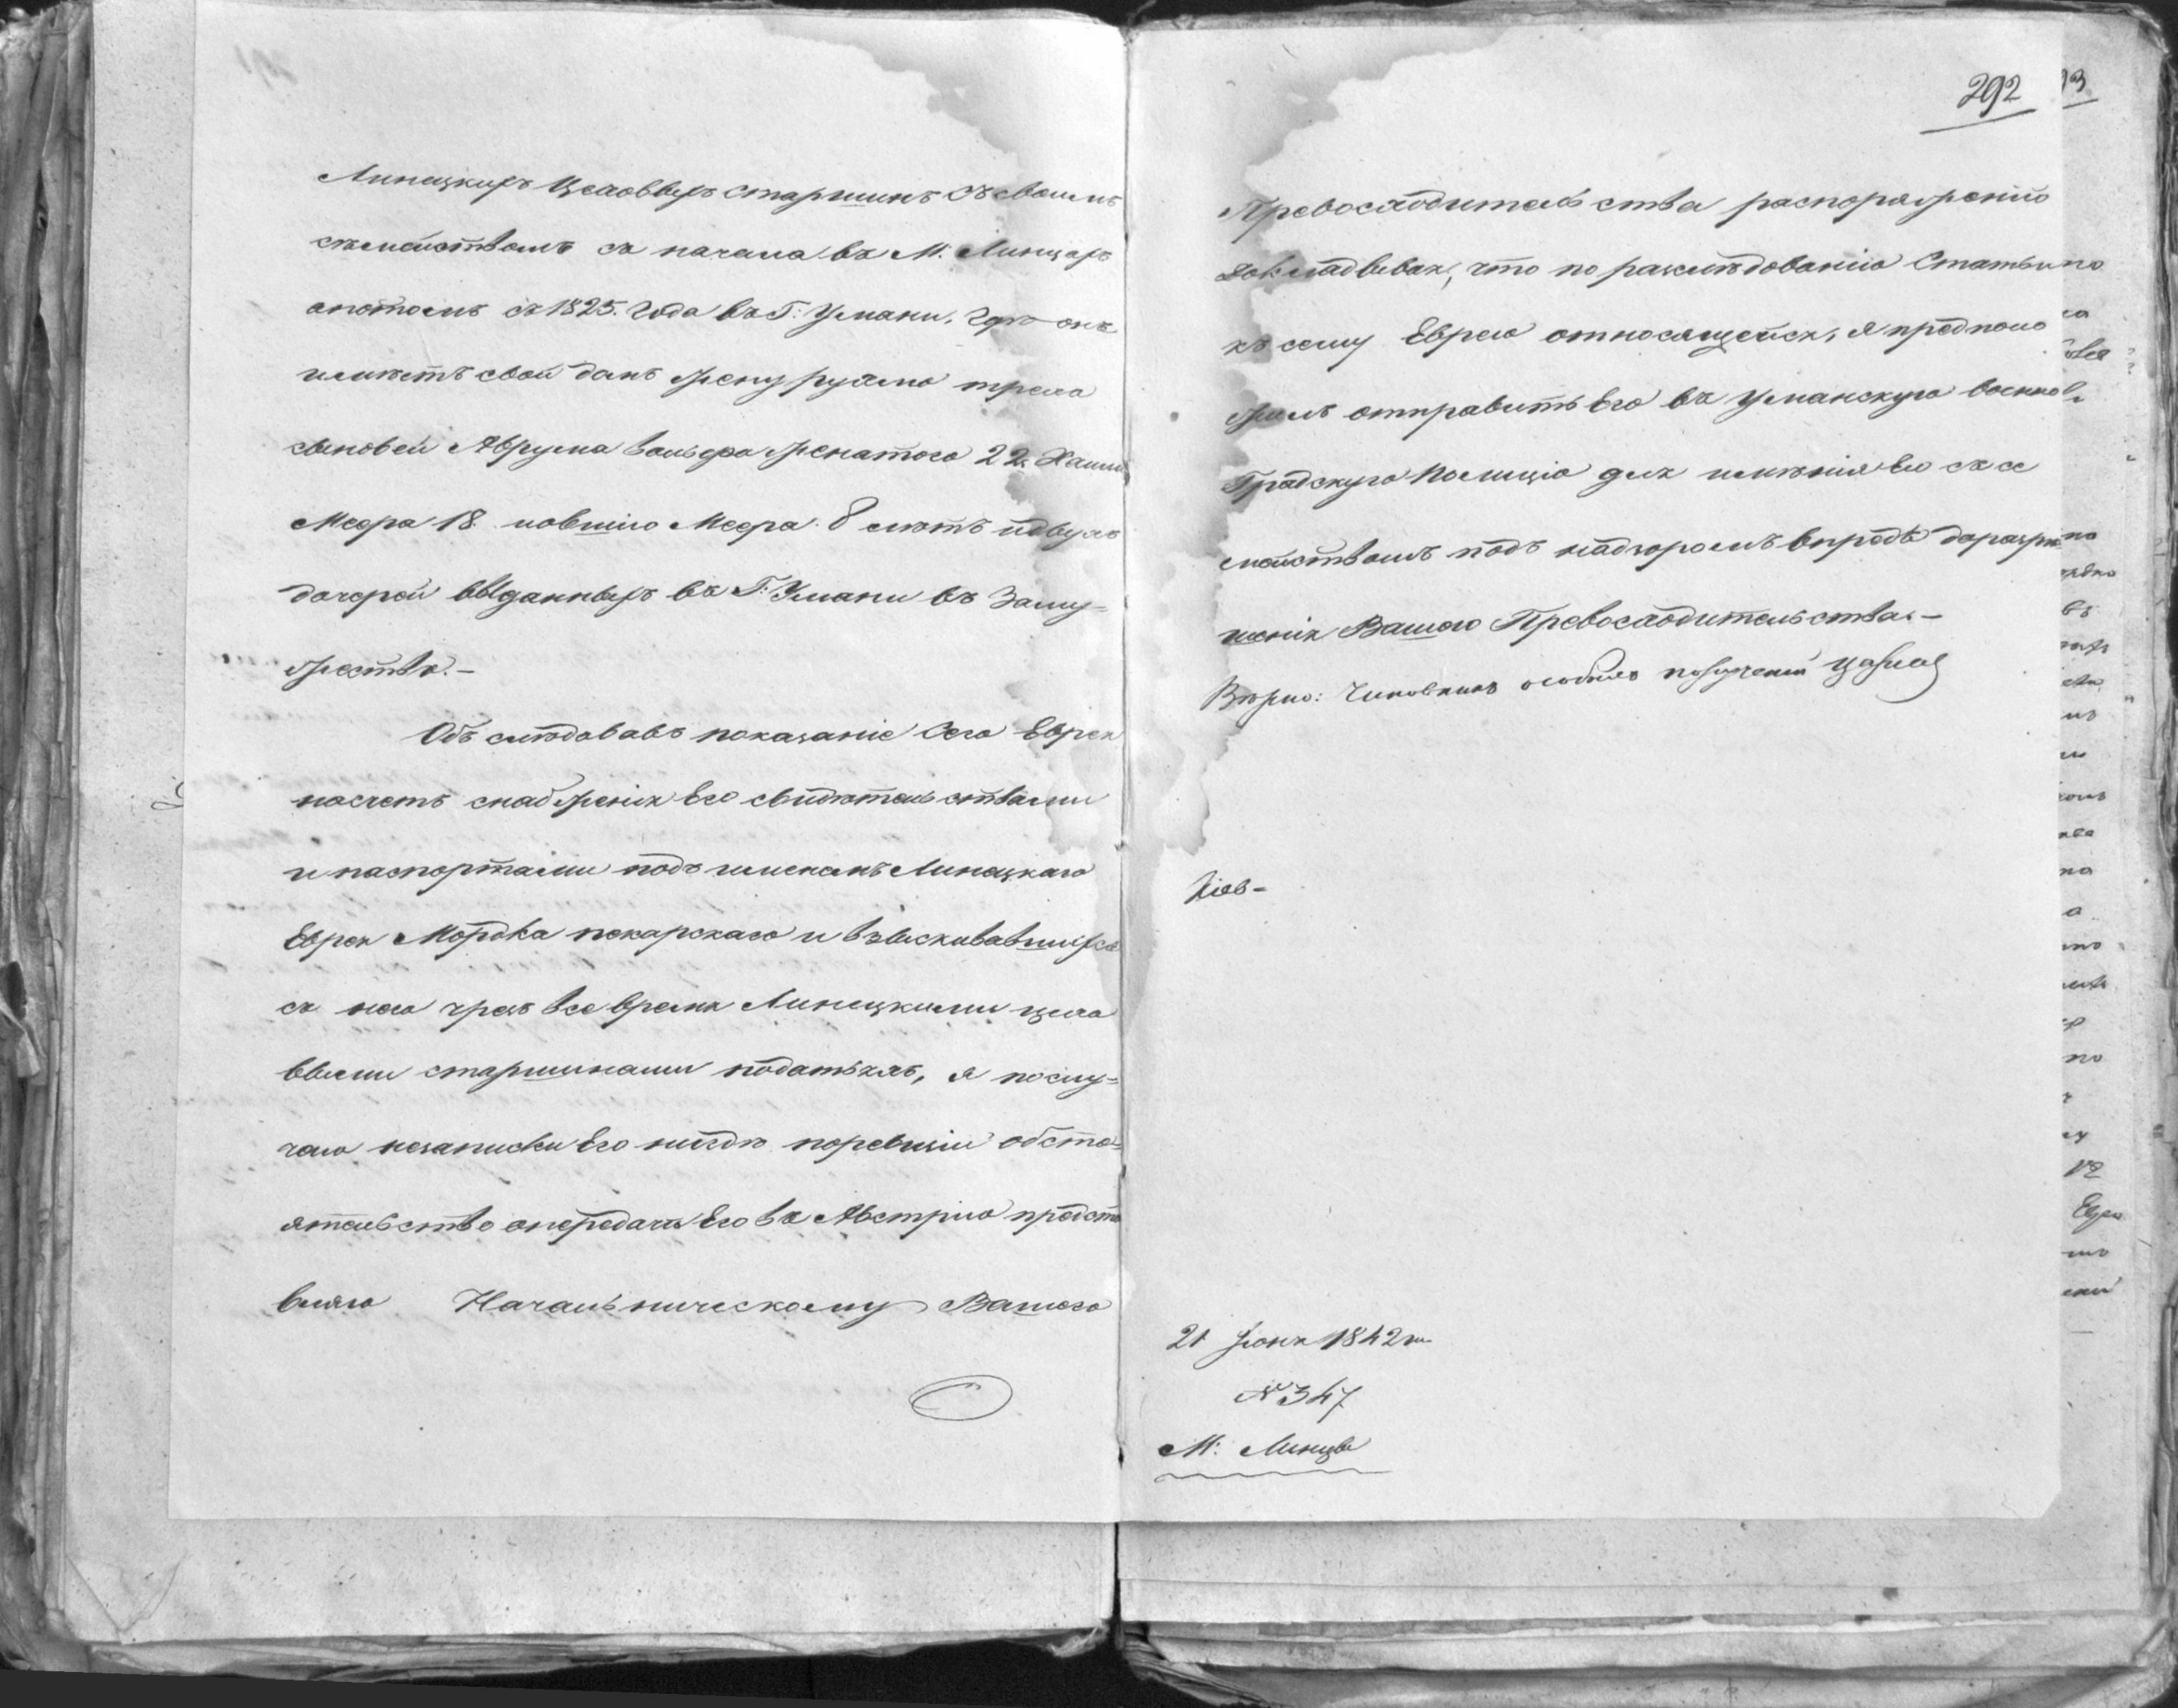 Линецкихъ Цеховыхъ старшинъ съ своимъ
семействомъ съ начала въ М. Линцахъ
апотомъ съ 1825. года въ Г: Умани, гдѣ онъ
имѣетъ свой домъ жену Рухлю трехъ
сыновей Аврума Вольфа женатого 22. Хаима
Меера 18. иовшію Меера 8 лѣтъ идвухъ
дочерей выданныхъ въ Г: Умани въ Заму=
жество.—
Обслѣдовавъ показаніе Сего Еврея
насчетъ снабженія Его свидѣтельствами
и паспортами подъ именемъ Линецкаго
Еврея Мордка пекарскаго и взыскивавшихся
съ него чрезъ все время Линецкими цехо
выми старшинами податяхъ, я послу=
чаю незаписки Его нигдѣ поревизіи обсто=
ятельство опередачѣ Его въ Австрію предста
вляю Начальническому Вашего
292
Превосходительства распоряженію
докладывая, что по разслѣдованію Статьи
къ сему Еврею относящейся, я предполо
жилъ отправить Его въ Уманскую военно
Градскую Полицію для имѣнія Его съ се
мействомъ подъ надзоромъ впредь доразрѣ
шенія Вашего Превосходительства.—
Вѣрно: Чиновникъ особыхъ порученій
Кіев-
21 Іюня 1842 г
№ 347
М: Линцы